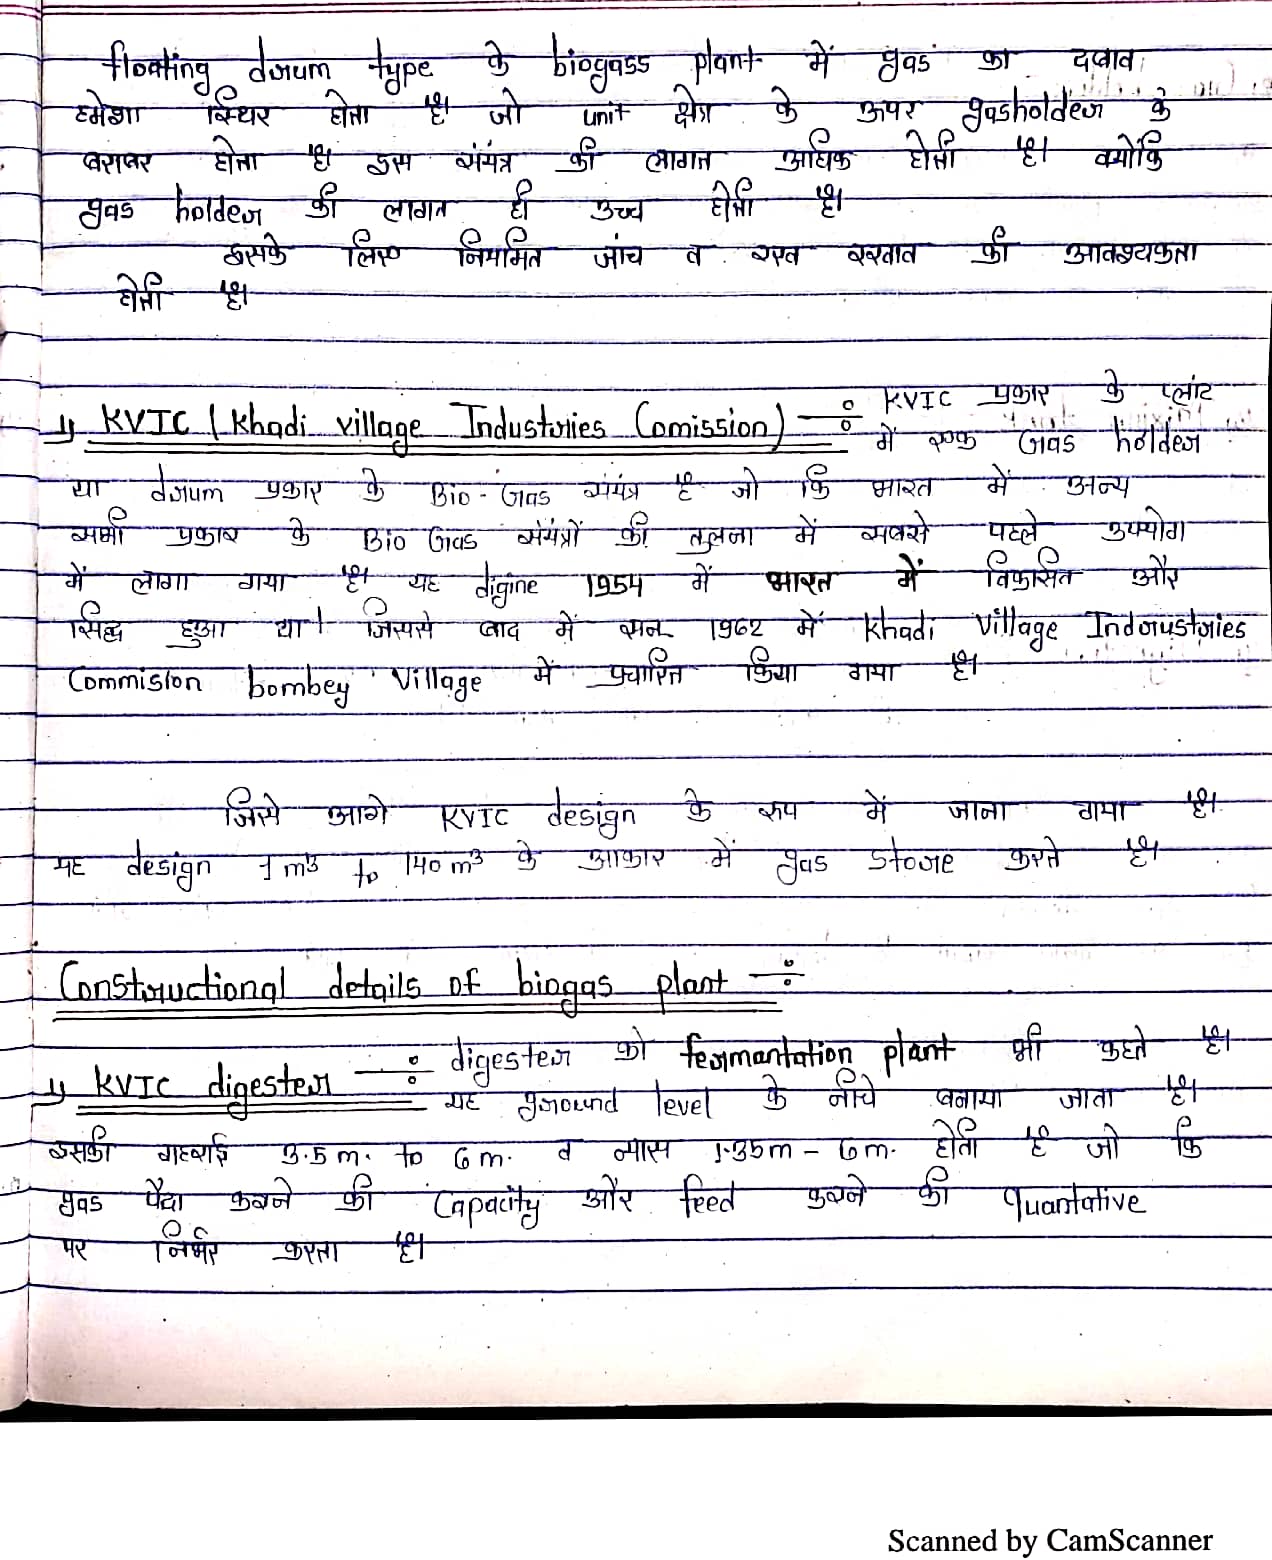 floating drum type के biogass plant में gas का दबाव
हमेशा स्थिर होता है। जो unit क्षेत्र के ऊपर gasholder के
बराबर होता है। इस संयंत्र की लागत अधिक होती है। क्योकि
gas holder की लागत ही उच्च होती है।
इसके लिए नियमित जांच व रख रखाव की आवश्यकता
होती है।
1) KVIC (khadi village Industries Comission) ÷ KVIC प्रकार के प्लांट
में एक Gas holder
या drum प्रकार के Bio-Gas संयंत्र है जो कि भारत में अन्य
सभी प्रकार के Bio Gas संयंत्रों की तुलना में सबसे पहले उपयोग
में लागा गया है। यह digine 1954 में भारत में विकासित और
सिद्ध हुआ था। जिससे बाद में सन 1962 में khadi Village Indrustries
Commision bombey Village में प्रचारित किया गया है।
जिसे आगे KVIC design के रूप में जाना गया है।
यह design 1 m³ to 140 m³ के आकार में gas store करते है।
Constructional details of biogas plant ÷
1) KVIC digester ÷ digester को fermantation plant भी कहते है।
यह ground level के नीचे बनाया जाता है।
इसकी गहराई 3.5 m. to 6 m. व व्यास 1.35m - 6 m. होती है जो कि
gas पैदा करने की Capacity और feed करने की quantative
पर निर्भर करता है।
Scanned by CamScanner